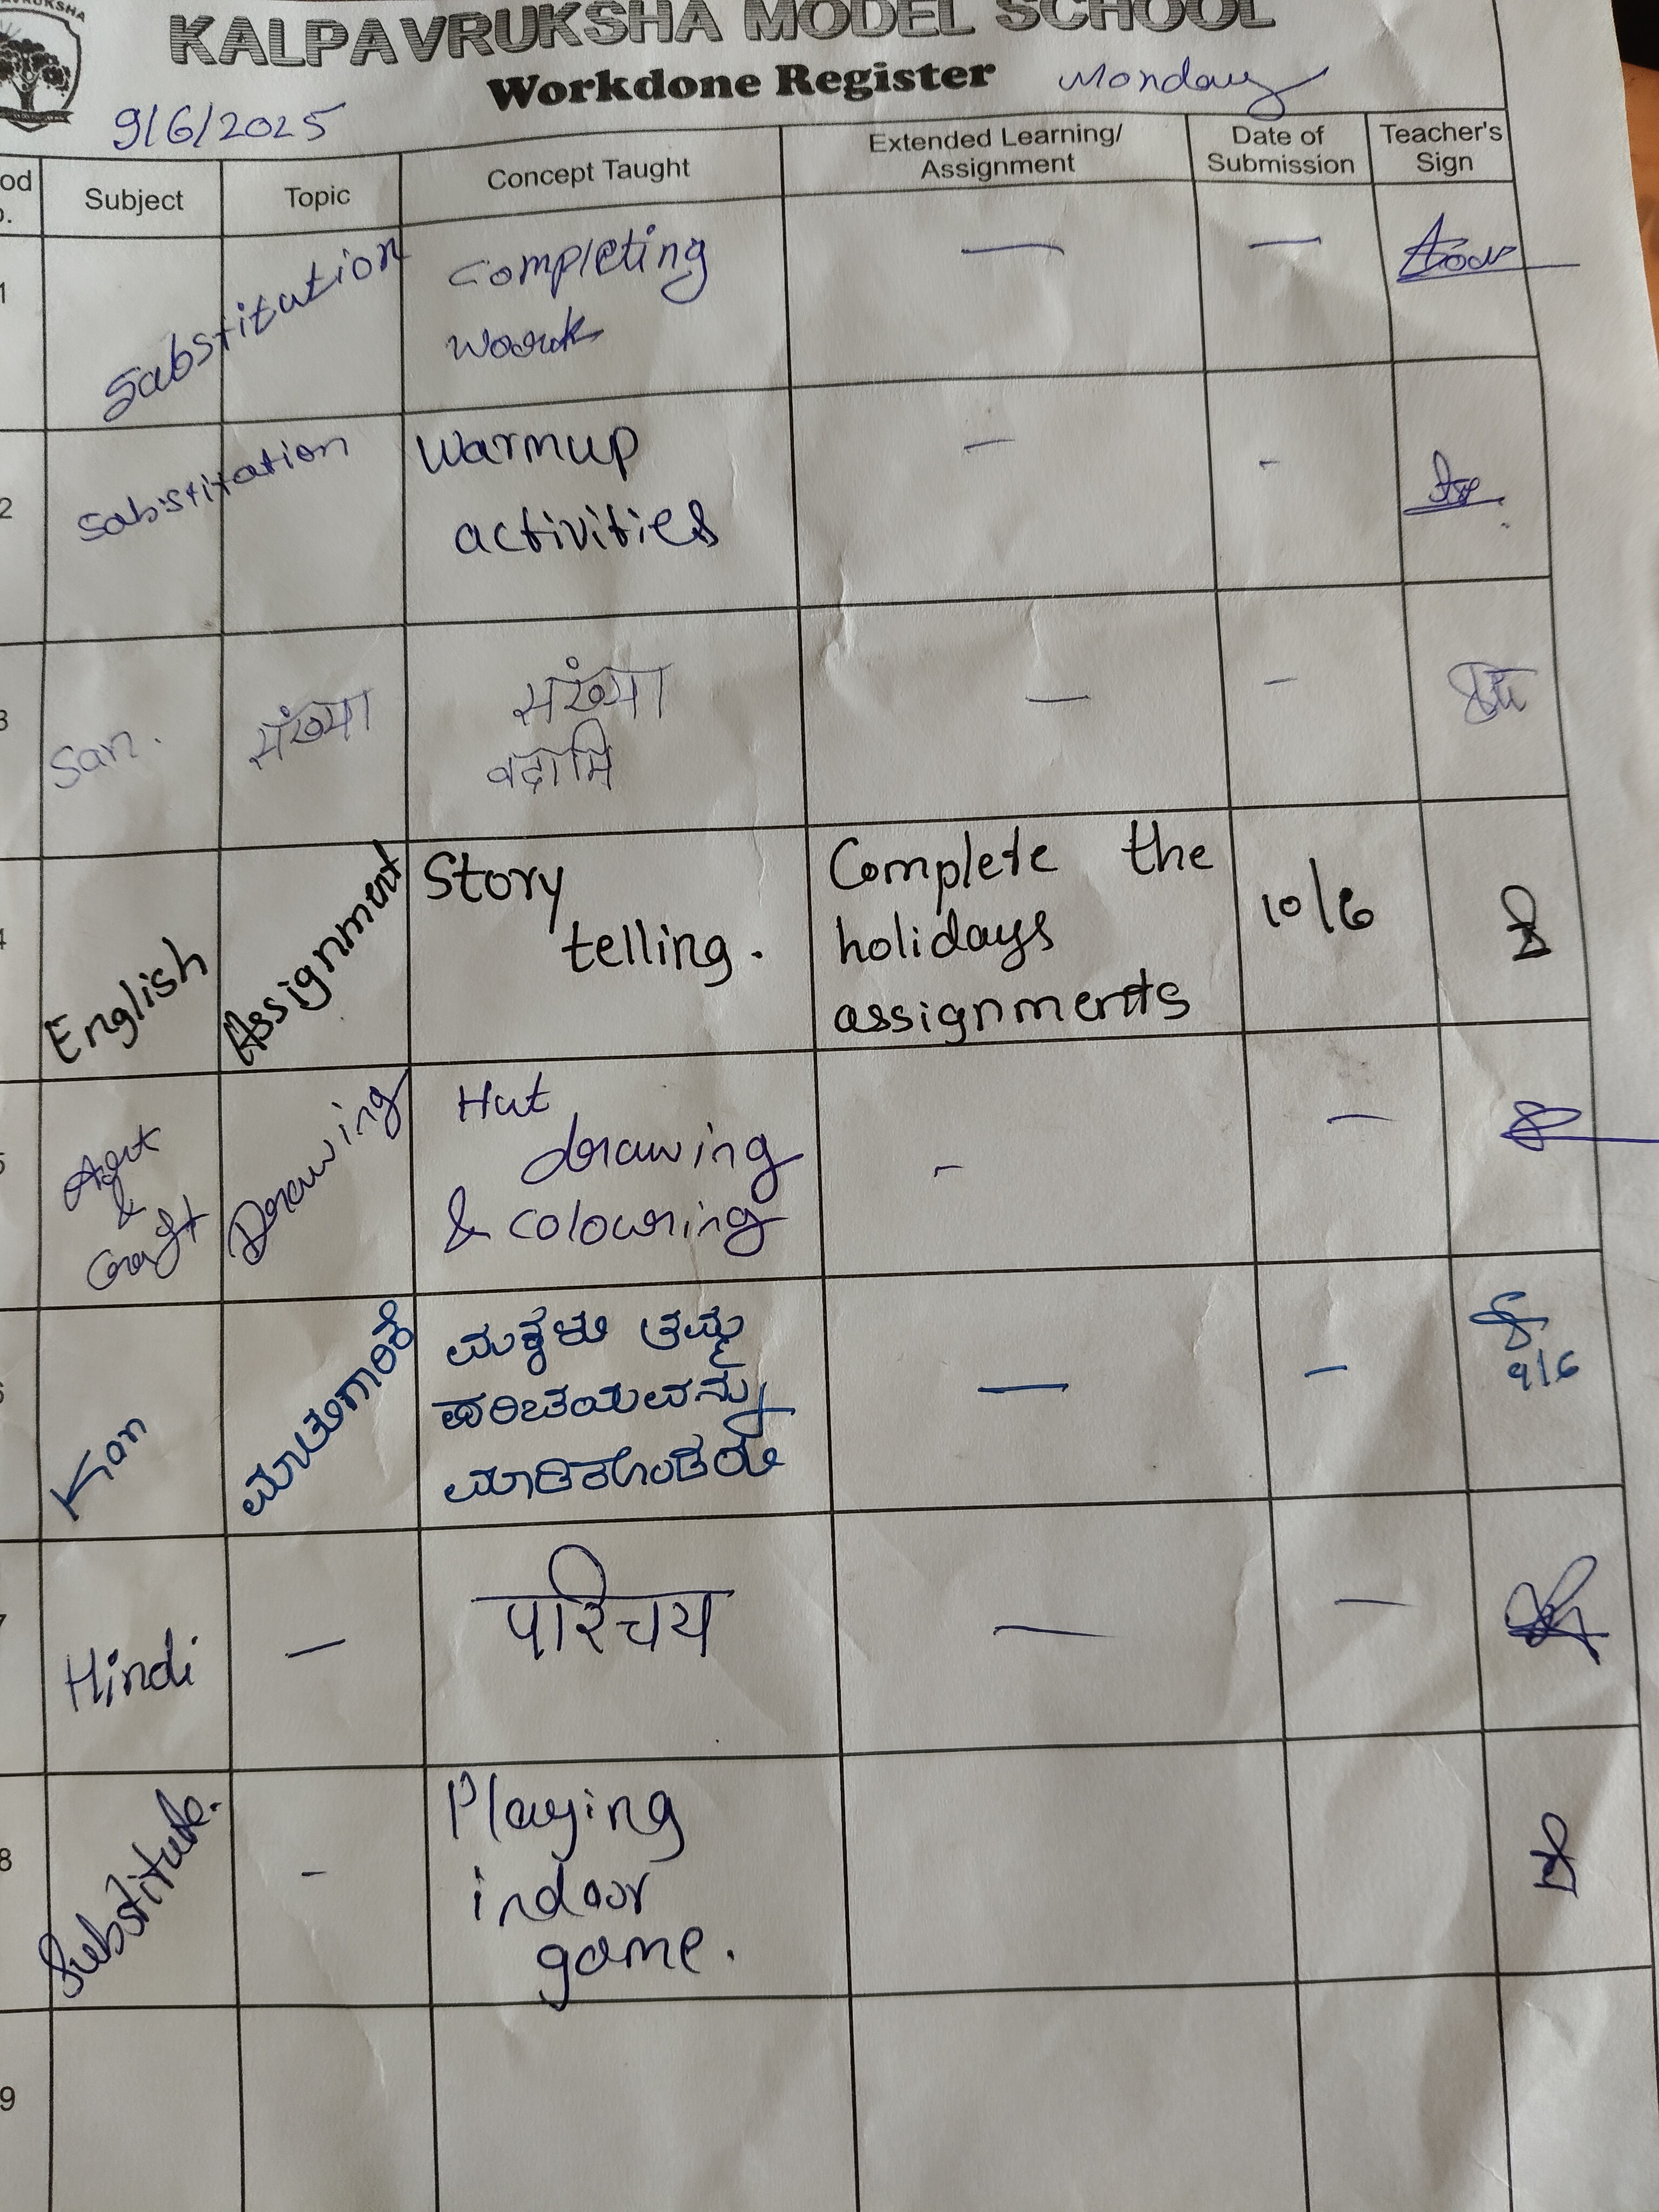 KALPAVRUKSHA MODEL SCHOOL
Workdone Register Monday
9/6/2025
Subject Topic Concept Taught Extended Learning/ Assignment Date of Submission Teacher's Sign
1 Sabstitation Completing — —
work
2 Sabstitation Warmup — -
activities
3 San. संख्या संख्या — —
वदामि
4 English Assignment Story telling. Complete the holidays assignments 10/6
5 Art & Craft Drawing Hut drawing & colouring - —
6 Kan ಮಾತುಗಾರಿಕೆ ಮಕ್ಕಳು ತಮ್ಮ — — 9/6
ಪರಿಚಯವನ್ನು
7 Hindi — परिचय — —
8 Substitute. - Playing
indoor
game.
9